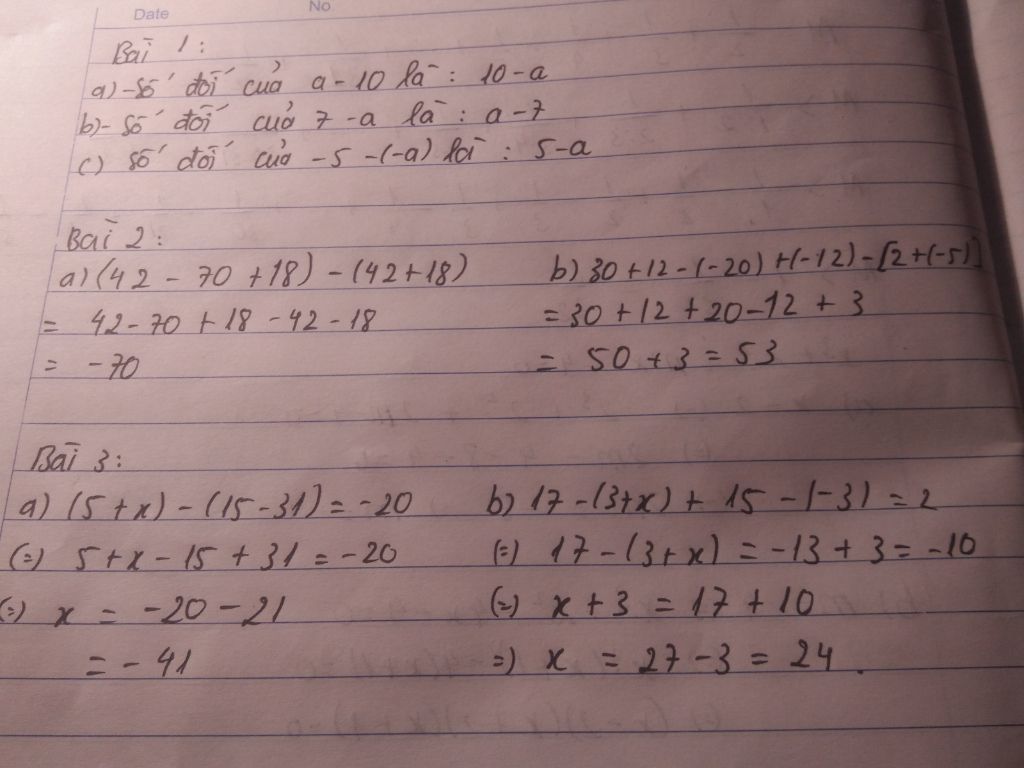 Date No
Bài 1:
a) - Số đối của a - 10 là : 10 - a
b) - Số đối của 7 - a là : a - 7
c) Số đối của -5 - (-a) là : 5 - a
Bài 2:
a) (42 - 70 + 18) - (42 + 18)
= 42 - 70 + 18 - 42 - 18
= -70
b) 30 + 12 - (-20) + (-12) - [2 + (-5)]
= 30 + 12 + 20 - 12 + 3
= 50 + 3 = 53
Bài 3:
a) (5 + x) - (15 - 31) = -20
(=) 5 + x - 15 + 31 = -20
(=) x = -20 - 21
= -41
b) 17 - (3 + x) + 15 - (-3) = 2
(=) 17 - (3 + x) = -13 + 3 = -10
(=) x + 3 = 17 + 10
=) x = 27 - 3 = 24.